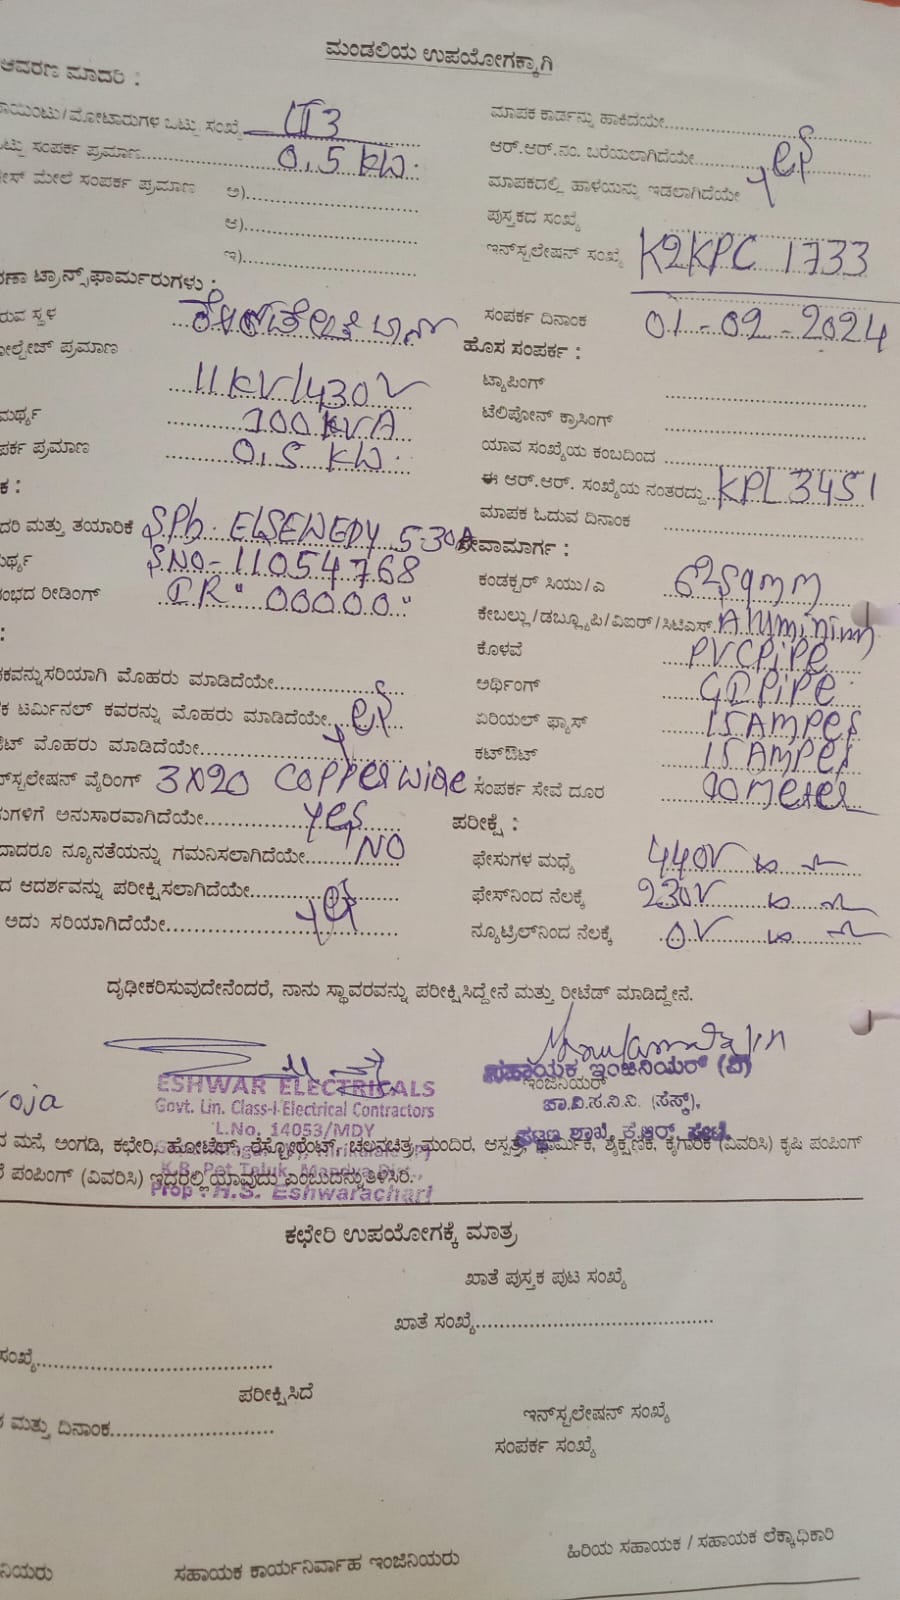 ಮಂಡಲಿಯ ಉಪಯೋಗಕ್ಕಾಗಿ
ಆವರಣ ಮಾದರಿ :
ಾಯಿಂಟು/ಮೋಟಾರುಗಳ ಒಟ್ಟು ಸಂಖ್ಯೆ LT3
ಟ್ಟು ಸಂಪರ್ಕ ಪ್ರಮಾಣ 0.5 KW.
ೇಸ್ ಮೇಲೆ ಸಂಪರ್ಕ ಪ್ರಮಾಣ ಅ)
ಆ)
ಇ)
ಣಾ ಟ್ರಾನ್ಸ್‌ಫಾರ್ಮರುಗಳು :
ರುವ ಸ್ಥಳ
ೋಲ್ಟೇಜ್ ಪ್ರಮಾಣ
11KV/430V
ಮರ್ಥ್ಯ 100 KVA
ಪರ್ಕ ಪ್ರಮಾಣ 0.5 KW.
ಕ :
ದರಿ ಮತ್ತು ತಯಾರಿಕೆ S.Ph. ELSEWEDY 5-30A
ಮರ್ಥ್ಯ S.NO-11054768
ಂಭದ ರೀಡಿಂಗ್ IR "00000"
:
ಕವನ್ನು ಸರಿಯಾಗಿ ಮೊಹರು ಮಾಡಿದೆಯೇ
ಕ ಟರ್ಮಿನಲ್ ಕವರನ್ನು ಮೊಹರು ಮಾಡಿದೆಯೇ yes
ಔಟ್ ಮೊಹರು ಮಾಡಿದೆಯೇ
ನ್‌ಸ್ಟಲೇಷನ್ ವೈರಿಂಗ್ 3X20 COPPER WIRE
ಗಳಿಗೆ ಅನುಸಾರವಾಗಿದೆಯೇ yes
ದಾದರೂ ನ್ಯೂನತೆಯನ್ನು ಗಮನಿಸಲಾಗಿದೆಯೇ NO
ದ ಆದರ್ಶವನ್ನು ಪರೀಕ್ಷಿಸಲಾಗಿದೆಯೇ yes
ಅದು ಸರಿಯಾಗಿದೆಯೇ
ಮಾಪಕ ಕಾರ್ಡನ್ನು ಹಾಕಿದೆಯೇ
ಆರ್.ಆರ್.ನಂ. ಬರೆಯಲಾಗಿದೆಯೇ yes
ಮಾಪಕದಲ್ಲಿ ಹಾಳೆಯನ್ನು ಇಡಲಾಗಿದೆಯೇ
ಪುಸ್ತಕದ ಸಂಖ್ಯೆ
ಇನ್‌ಸ್ಟಲೇಷನ್ ಸಂಖ್ಯೆ K2KPC 1733
ಸಂಪರ್ಕ ದಿನಾಂಕ 01-02-2024
ಹೊಸ ಸಂಪರ್ಕ :
ಟ್ಯಾಪಿಂಗ್
ಟೆಲಿಪೋನ್ ಕ್ರಾಸಿಂಗ್
ಯಾವ ಸಂಖ್ಯೆಯ ಕಂಬದಿಂದ
ಈ ಆರ್.ಆರ್. ಸಂಖ್ಯೆಯ ನಂತರದ್ದು KPL3451
ಮಾಪಕ ಓದುವ ದಿನಾಂಕ
ಸೇವಾಮಾರ್ಗ :
ಕಂಡಕ್ಟರ್ ಸಿಯು/ಎ
ಕೇಬಲ್ಲು/ಡಬ್ಲ್ಯೂಪಿ/ವಿಐಆರ್/ಸಿಟಿಎಸ್ Aluminium
ಕೊಳವೆ PVC PIPE
ಅರ್ಥಿಂಗ್ GI PIPE
ಏರಿಯಲ್ ಫ್ಯಾಸ್ 15 AMPES
ಕಟ್‌ಔಟ್ 15 AMPES
ಸಂಪರ್ಕ ಸೇವೆ ದೂರ meter
ಪರೀಕ್ಷೆ :
ಫೇಸುಗಳ ಮಧ್ಯೆ 440V ∞
ಫೇಸ್‌ನಿಂದ ನೆಲಕ್ಕೆ 230V ∞
ನ್ಯೂಟ್ರಿಲ್‌ನಿಂದ ನೆಲಕ್ಕೆ 0V ∞
ದೃಢೀಕರಿಸುವುದೇನೆಂದರೆ, ನಾನು ಸ್ಥಾವರವನ್ನು ಪರೀಕ್ಷಿಸಿದ್ದೇನೆ ಮತ್ತು ರೀಟೆಡ್ ಮಾಡಿದ್ದೇನೆ.
ESHWAR ELECTRICALS
Govt. Lin. Class-I Electrical Contractors
L.No. 14053/MDY
K.R. Pet Taluk, Mandya Dist.,
Prop : H.S. Eshwarachari
ಸಹಾಯಕ ಇಂಜಿನಿಯರ್ (ವಿ)
ಇಂಜಿನಿಯರ್
ಚಾ.ವಿ.ಸ.ನಿ.ನಿ. (ಸೆಸ್ಕ್),
ಪಟ್ಟಣ ಶಾಖೆ, ಕೆ.ಆರ್. ಪೇಟೆ.
ನ ಮನೆ, ಅಂಗಡಿ, ಕಛೇರಿ, ಹೋಟೆಲ್, ರೆಸ್ಟೋರೆಂಟ್, ಚಲನಚಿತ್ರ ಮಂದಿರ, ಆಸ್ಪತ್ರೆ, ಧಾರ್ಮಿಕ, ಶೈಕ್ಷಣಿಕ, ಕೈಗಾರಿಕೆ (ವಿವರಿಸಿ) ಕೃಷಿ ಪಂಪಿಂಗ್
ಪಂಪಿಂಗ್ (ವಿವರಿಸಿ) ಇದ್ದರಲ್ಲಿ ಯಾವುದು ಎಂಬುದನ್ನು ತಿಳಿಸಿರಿ.
ಕಛೇರಿ ಉಪಯೋಗಕ್ಕೆ ಮಾತ್ರ
ಖಾತೆ ಪುಸ್ತಕ ಪುಟ ಸಂಖ್ಯೆ
ಖಾತೆ ಸಂಖ್ಯೆ
ಸಂಖ್ಯೆ
ಪರೀಕ್ಷಿಸಿದೆ
ಮತ್ತು ದಿನಾಂಕ
ಇನ್‌ಸ್ಟಲೇಷನ್ ಸಂಖ್ಯೆ
ಸಂಪರ್ಕ ಸಂಖ್ಯೆ
ನಿಯರು ಸಹಾಯಕ ಕಾರ್ಯನಿರ್ವಾಹ ಇಂಜಿನಿಯರು ಹಿರಿಯ ಸಹಾಯಕ / ಸಹಾಯಕ ಲೆಕ್ಕಾಧಿಕಾರಿ